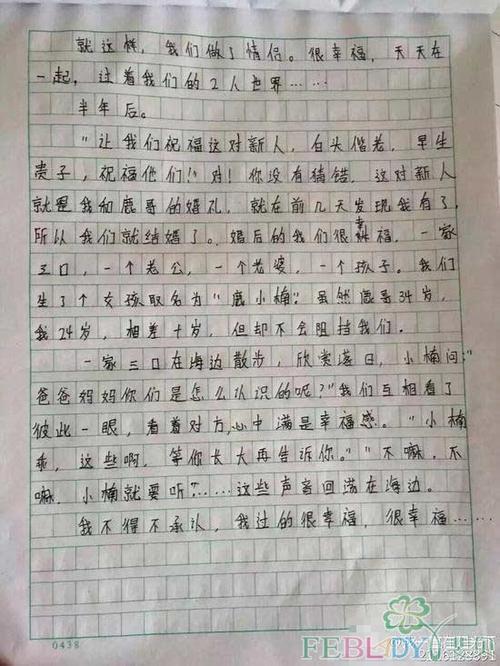 就这样，我们做了情侣。很幸福，天天在
一起，过着我们的2人世界……
半年后。
"让我们祝福这对新人，白头偕老，早生
贵子，祝福他们！"对！你没有猜错，这对新人
就是我和鹿哥的婚礼，就在前几天发现我有了，
所以我们就结婚了。婚后的我们很幸福，一家
三口，一个老公，一个老婆，一个孩子。我们
生了个女孩取名为"鹿小楠"。虽然鹿哥34岁，
我24岁，相差十岁，但却不会阻挡我们。
一家三口在海边散步，欣赏落日，小楠问："
爸爸妈妈你们是怎么认识的呢？"我们互相看了
彼此一眼，看着对方，心中满是幸福感。"小楠
乖，这些啊，等你长大再告诉你。""不嘛，不
嘛，小楠就要听"……这些声音回荡在海边。
我不得不承认，我过的很幸福，很幸福……
0438
FEBLDY